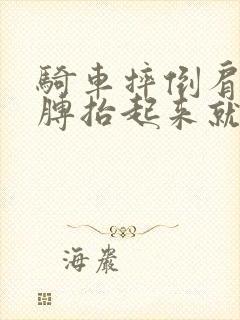 騎車摔倒肩
膊抬起来就
海嚴